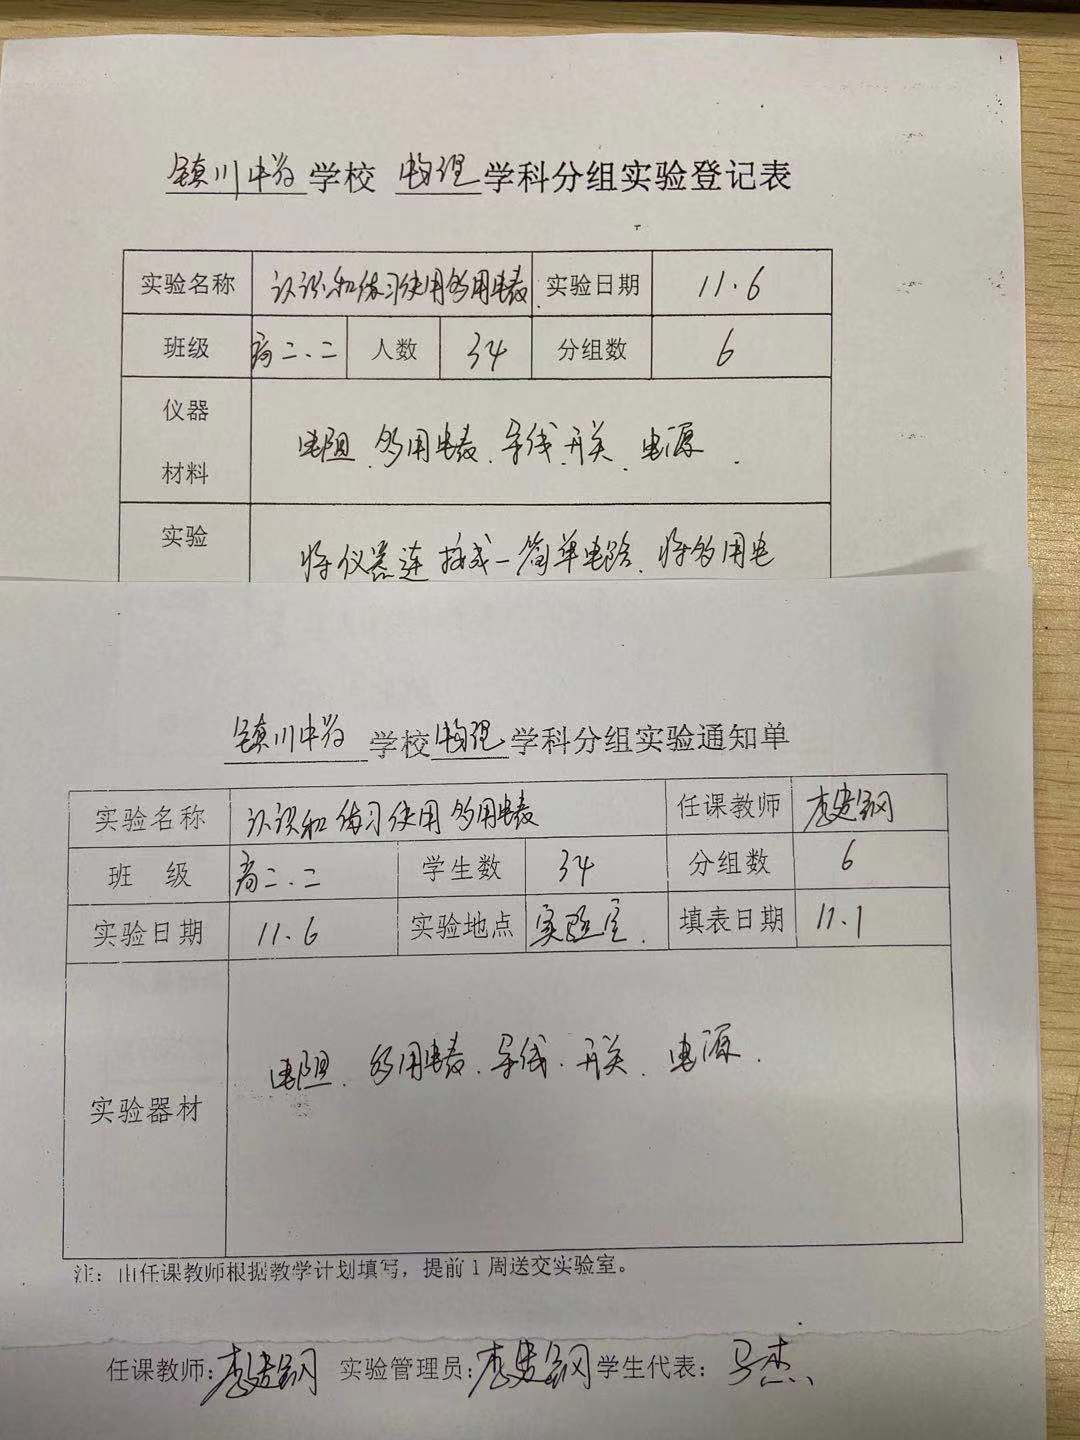 镇川中学学校 物理学科分组实验登记表
实验名称 认识和练习使用多用电表 实验日期 11.6
班级 高二.二 人数 34 分组数 6
仪器
材料
电阻.多用电表.导线.开关.电源.
实验
将仪器连接成一简单电路.将多用电
镇川中学学校物理学科分组实验通知单
实验名称 认识和练习使用多用电表 任课教师 李建钢
班 级 高二.二 学生数 34 分组数 6
实验日期 11.6 实验地点 实验室. 填表日期 11.1
实验器材 电阻.多用电表.导线.开关.电源.
注：由任课教师根据教学计划填写，提前1周送交实验室。
任课教师:李建钢 实验管理员:李建钢 学生代表:马杰